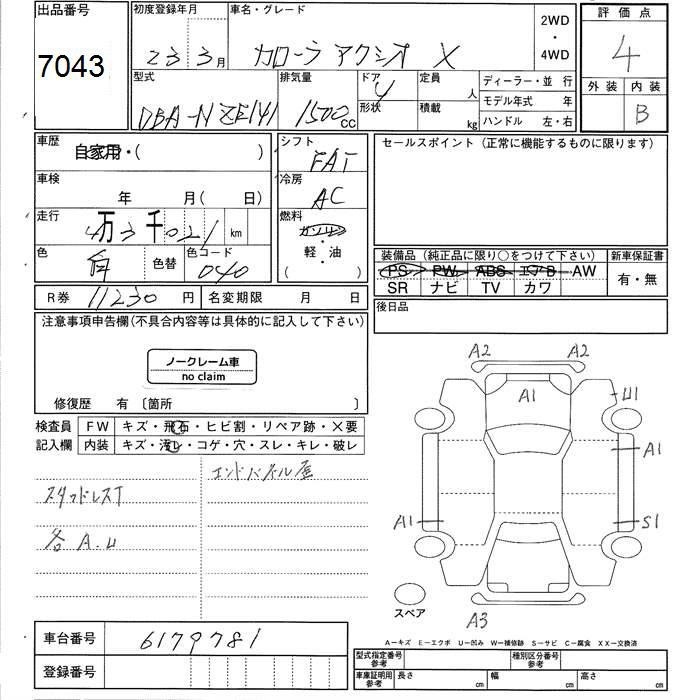 出品番号
7043
初度登録年月
23 3月
車名・グレード
カローラ アクシオ X
2WD
・
4WD
評価点
4
外装 内装
B
型式
DBA-NZE141
排気量
1500 CC
ドア
4
形状
定員
人
積載
kg
ディーラー・並 行
モデル年式 年
ハンドル 左・右
車歴
自家用・( )
車検
年 月( 日)
走行
4万3千021 km
色
白
色替
色コード
040
シフト
FAT
冷房
AC
燃料
ガソリン
軽・油
( )
セールスポイント(正常に機能するものに限ります)
装備品(純正品に限り○をつけて下さい)
PS PW ABS エアB AW
SR ナビ TV カワ
新車保証書
有・無
R券 11230 円
名変期限 月 日
後日品
注意事項申告欄(不具合内容等は具体的に記入して下さい)
ノークレーム車
no claim
修復歴 有 〔箇所 〕
検査員
記入欄
FW キズ・飛石・ヒビ割・リペア跡・×要
内装 キズ・汚レ・コゲ・穴・スレ・キレ・破レ
エンドパネル歪
スタッドレスT
各 A.U
A2 A2
A1
U1
A1
A1
S1
スペア
A3
車台番号 6179781
登録番号
A−キズ E−エクボ U−凹み W−補修跡 S−サビ C−腐食 XX−交換済
型式指定番号
参考
種別区分番号
参考
車庫証明用
参考
長さ cm
幅 cm
高さ cm